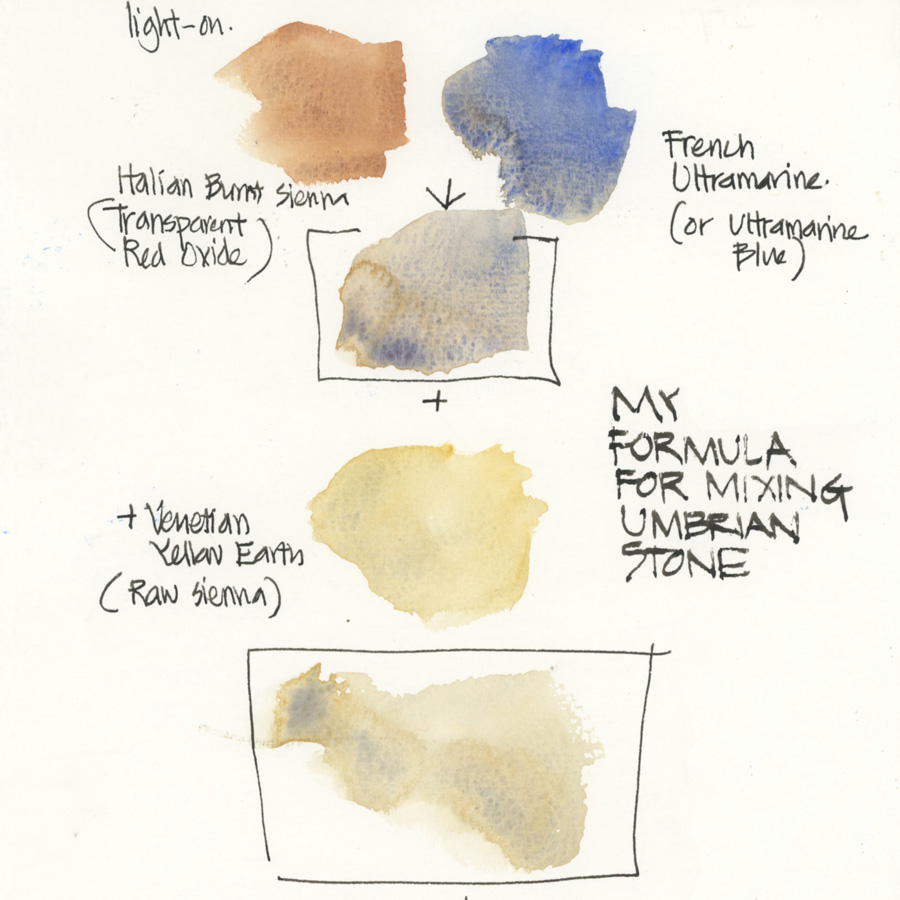 light-on.
Italian Burnt Sienna
(Transparent
Red Oxide)
French
Ultramarine.
(or Ultramarine
Blue)
+
MY
FORMULA
FOR MIXING
UMBRIAN
STONE
+ Venetian
Yellow Earth
(Raw Sienna)